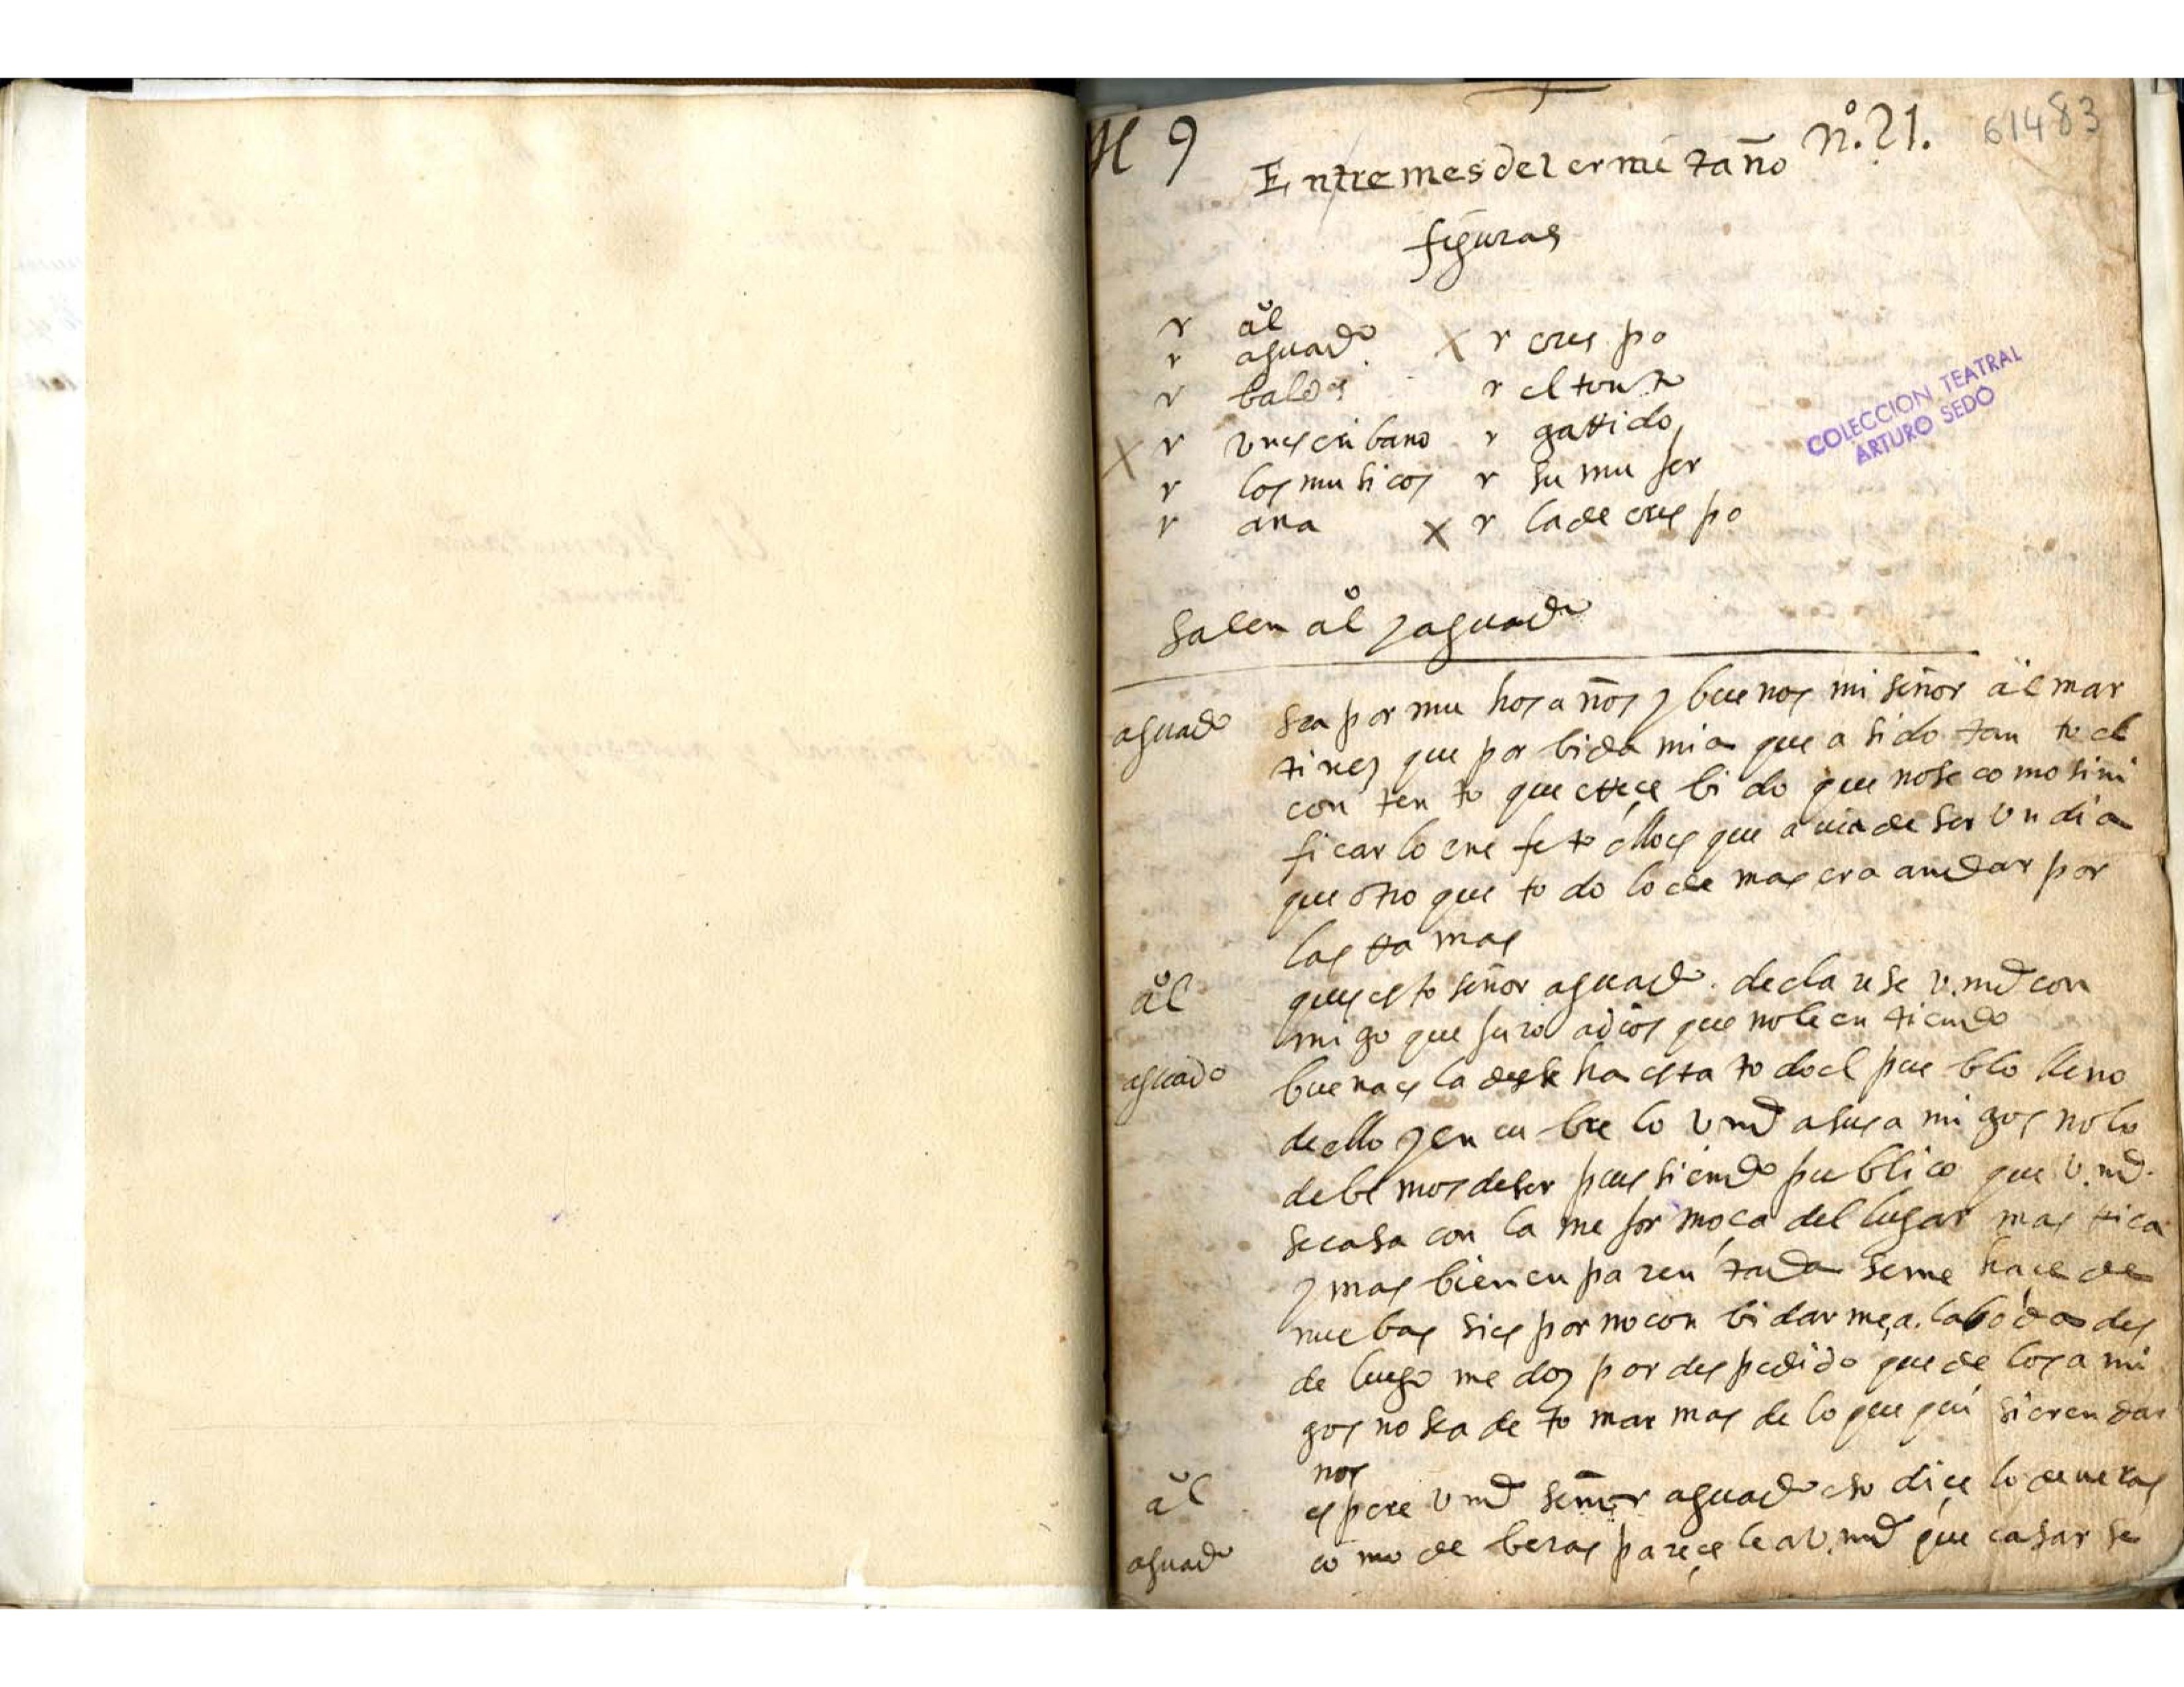 N 9
nº. 21.
61483
Entremes del ermitaño
figuras
r al
r aguado X r crespo
r baldes r el tonto
X r un escribano r garrido
r los musicos r su mujer
r ana X r la de crespo
COLECCION TEATRAL
ARTURO SEDÓ
Salen al y aguado
aguado sea por muchos años y buenos mi señor al mar
tinez que por bida mia que a sido tanto el
contento que errecebido que nose como sini
ficarlo en efeto ello es que avia de ser un dia
que otro que todo lo demas era andar por
las rramas
al ques esto señor aguado. declarese v.md con
migo que juro a dios que nole entiendo
aguado buena es la desecha esta todo el pueblo lleno
de ello y encubrelo vmd a sus amigos no lo
debemos de ser pues siendo publico que v.md.
se casa con la mejor moça del lugar mas rrica
y mas bien enparentada seme haçe de
nuebas si es por no conbidarme a la boda des
de luego me doy por despedido que de los ami
gos no sea de tomar mas de lo que quisieren dar
nos
al espere vmd señor aguado eso dicelo de veras
aguado como de beras pareçele a v.md que casarse